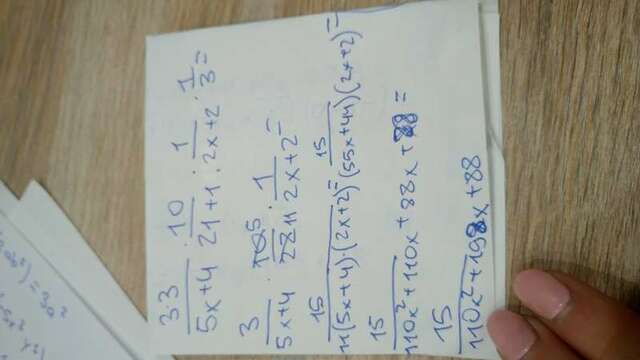 3·3/5x+4 · 10/21+1 : 1/2x+2 · 1/3 =
3/5x+4 · 5/11 · 1/2x+2 =
15/11(5x+4)·(2x+2) = 15/(55x+44)(2x+2) =
15/110x²+110x+88x+88 =
15/110x²+198x+88